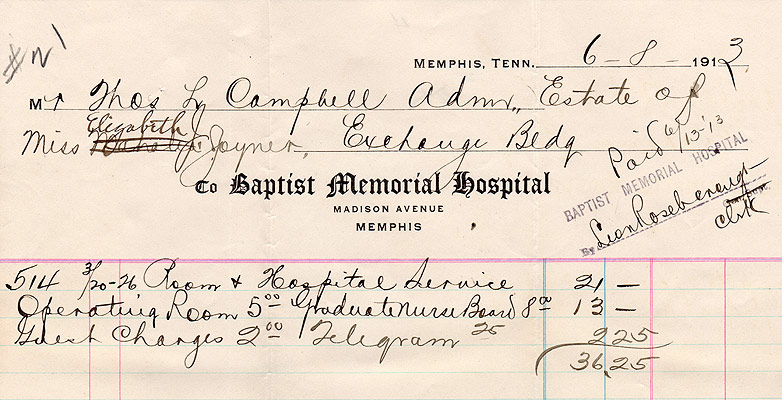 #21
MEMPHIS, TENN. 6-8-1913
Mr Thos L Campbell Admr, Estate of
Miss Elizabeth Joyner, Exchange Bldg
Paid 6/13-13
To Baptist Memorial Hospital
BAPTIST MEMORIAL HOSPITAL
MADISON AVENUE
By
Clk
MEMPHIS
514 3/20-26 Room & Hospital Service 21 —
Operating Room 5 00 Graduate Nurse Board 8 00 13 —
Guest Charges 2 00 Telegram 25 225
36.25